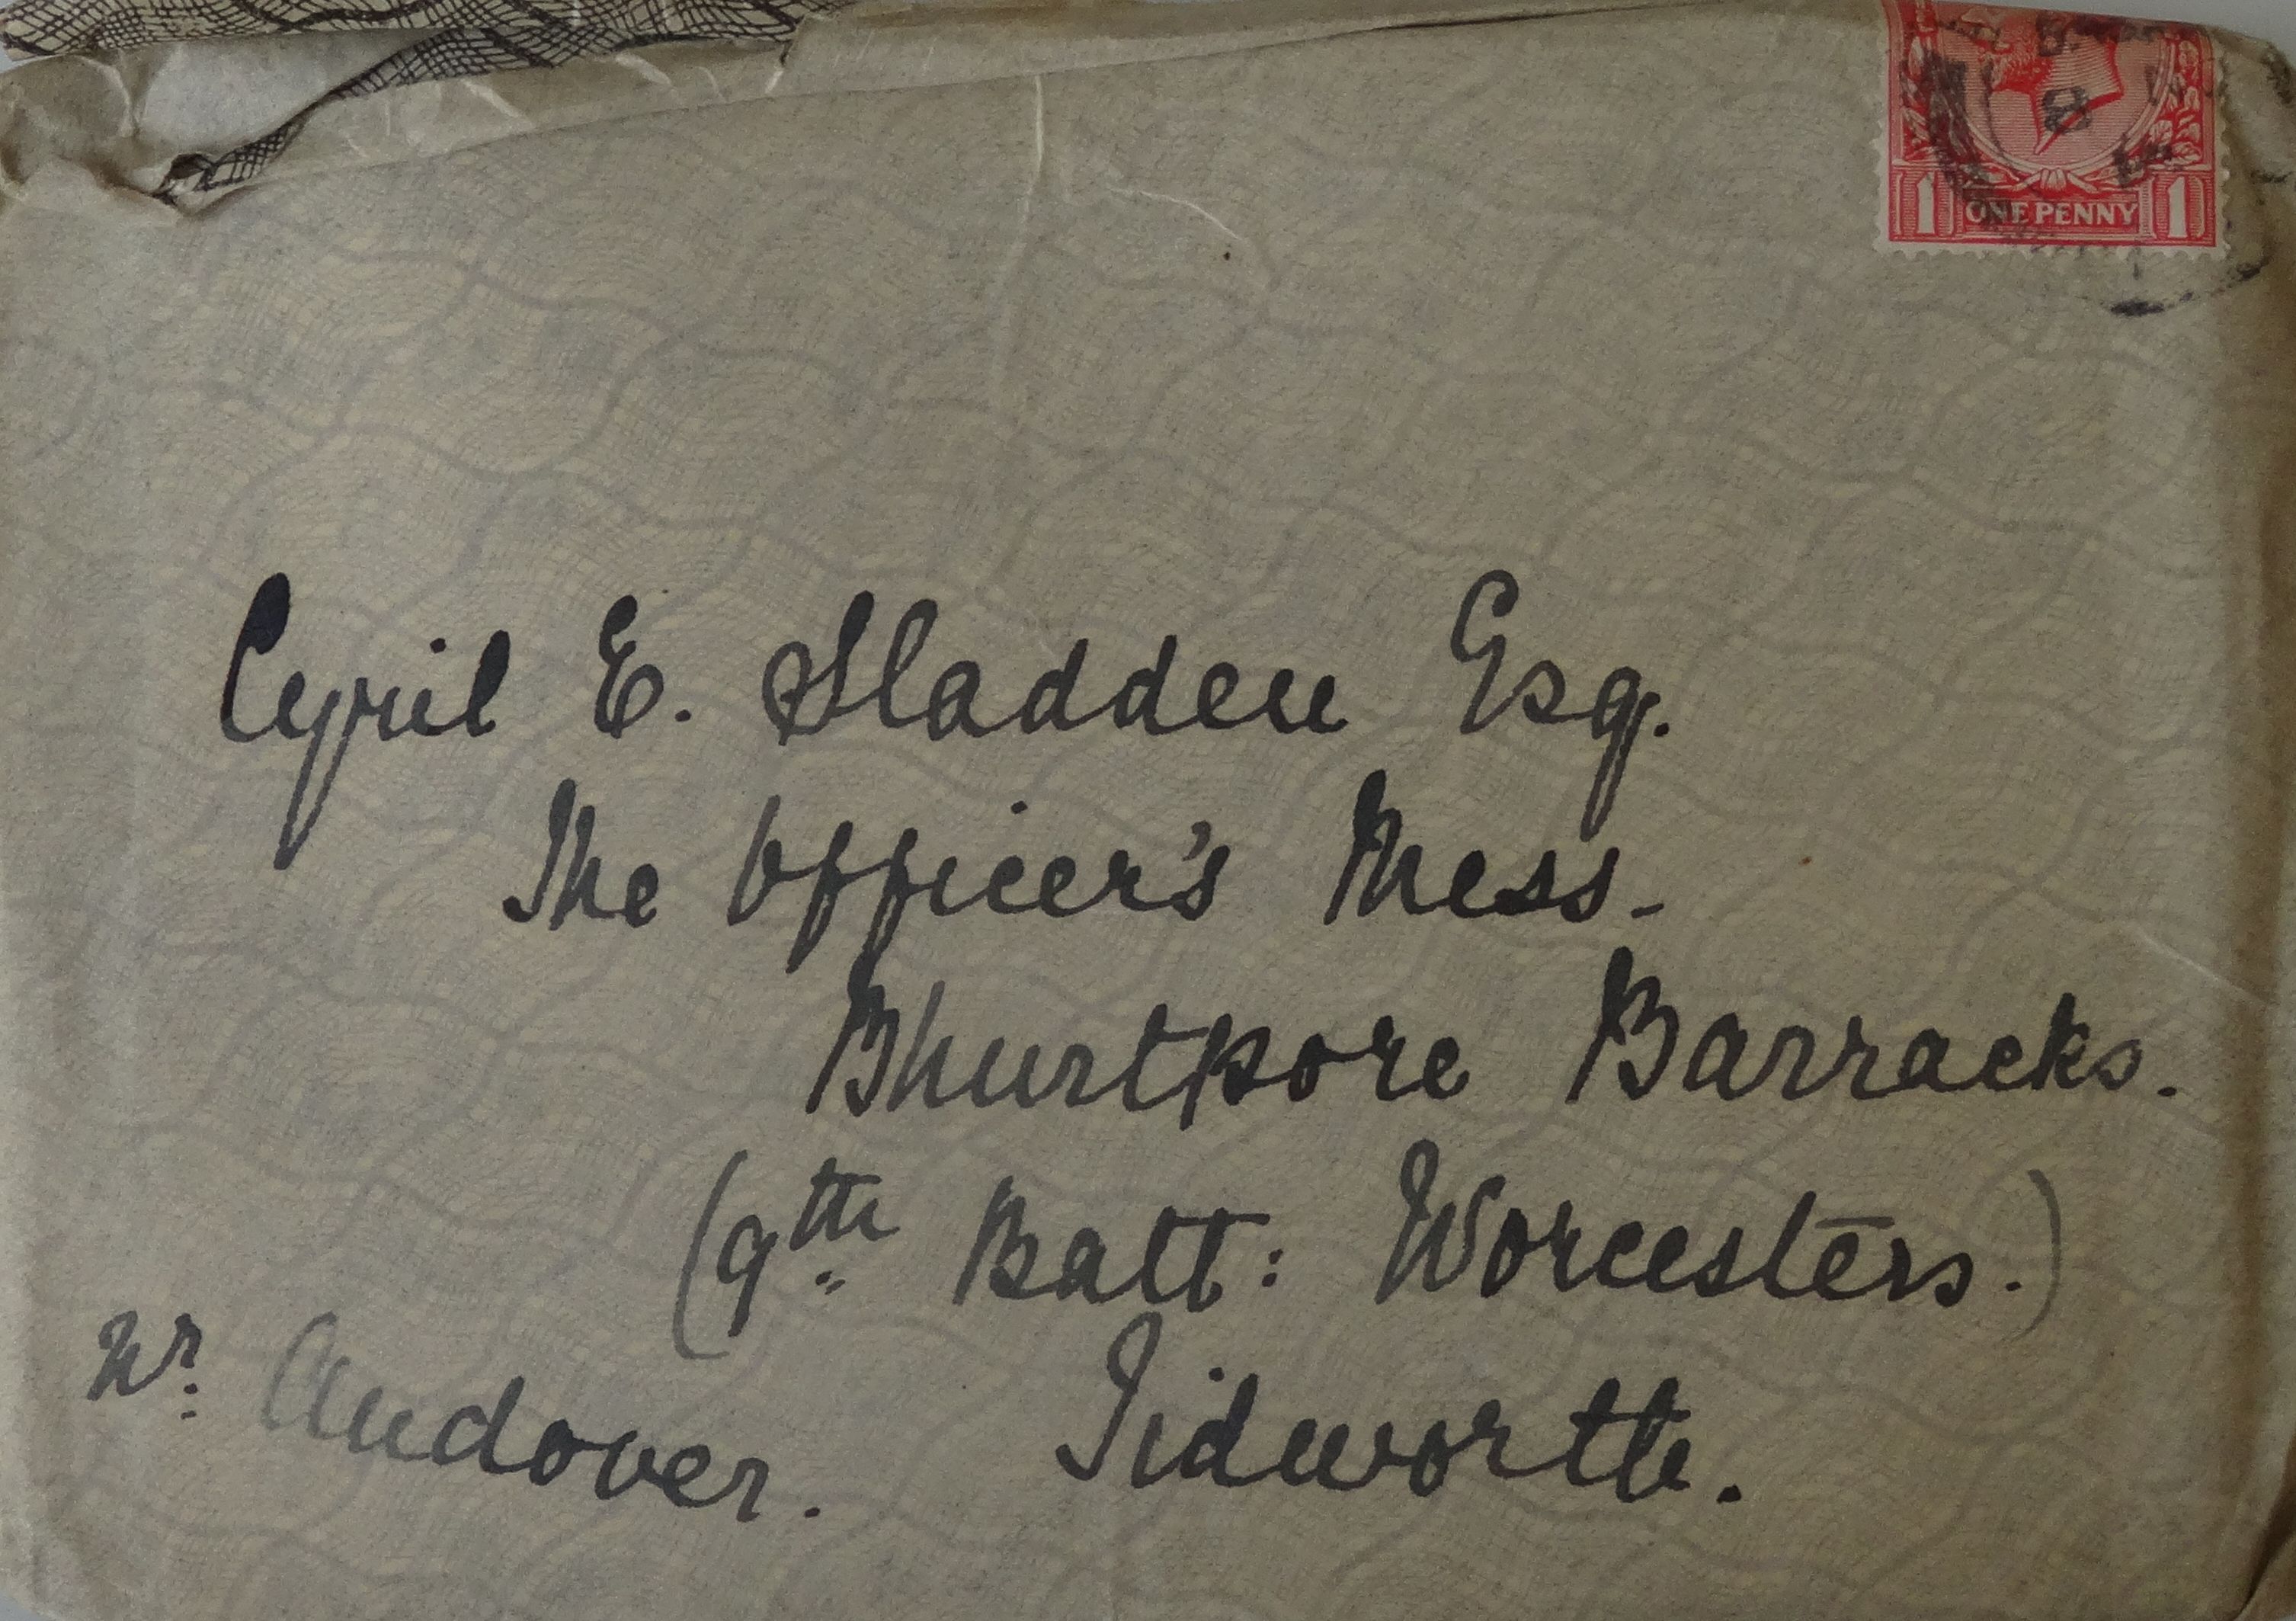 1 ONE PENNY 1
Cyril E. Sladden Esq.
The Officer's Mess.
Bhurtpore Barracks.
(9th Batt: Worcesters.)
Tidworth.
Nr. Andover.